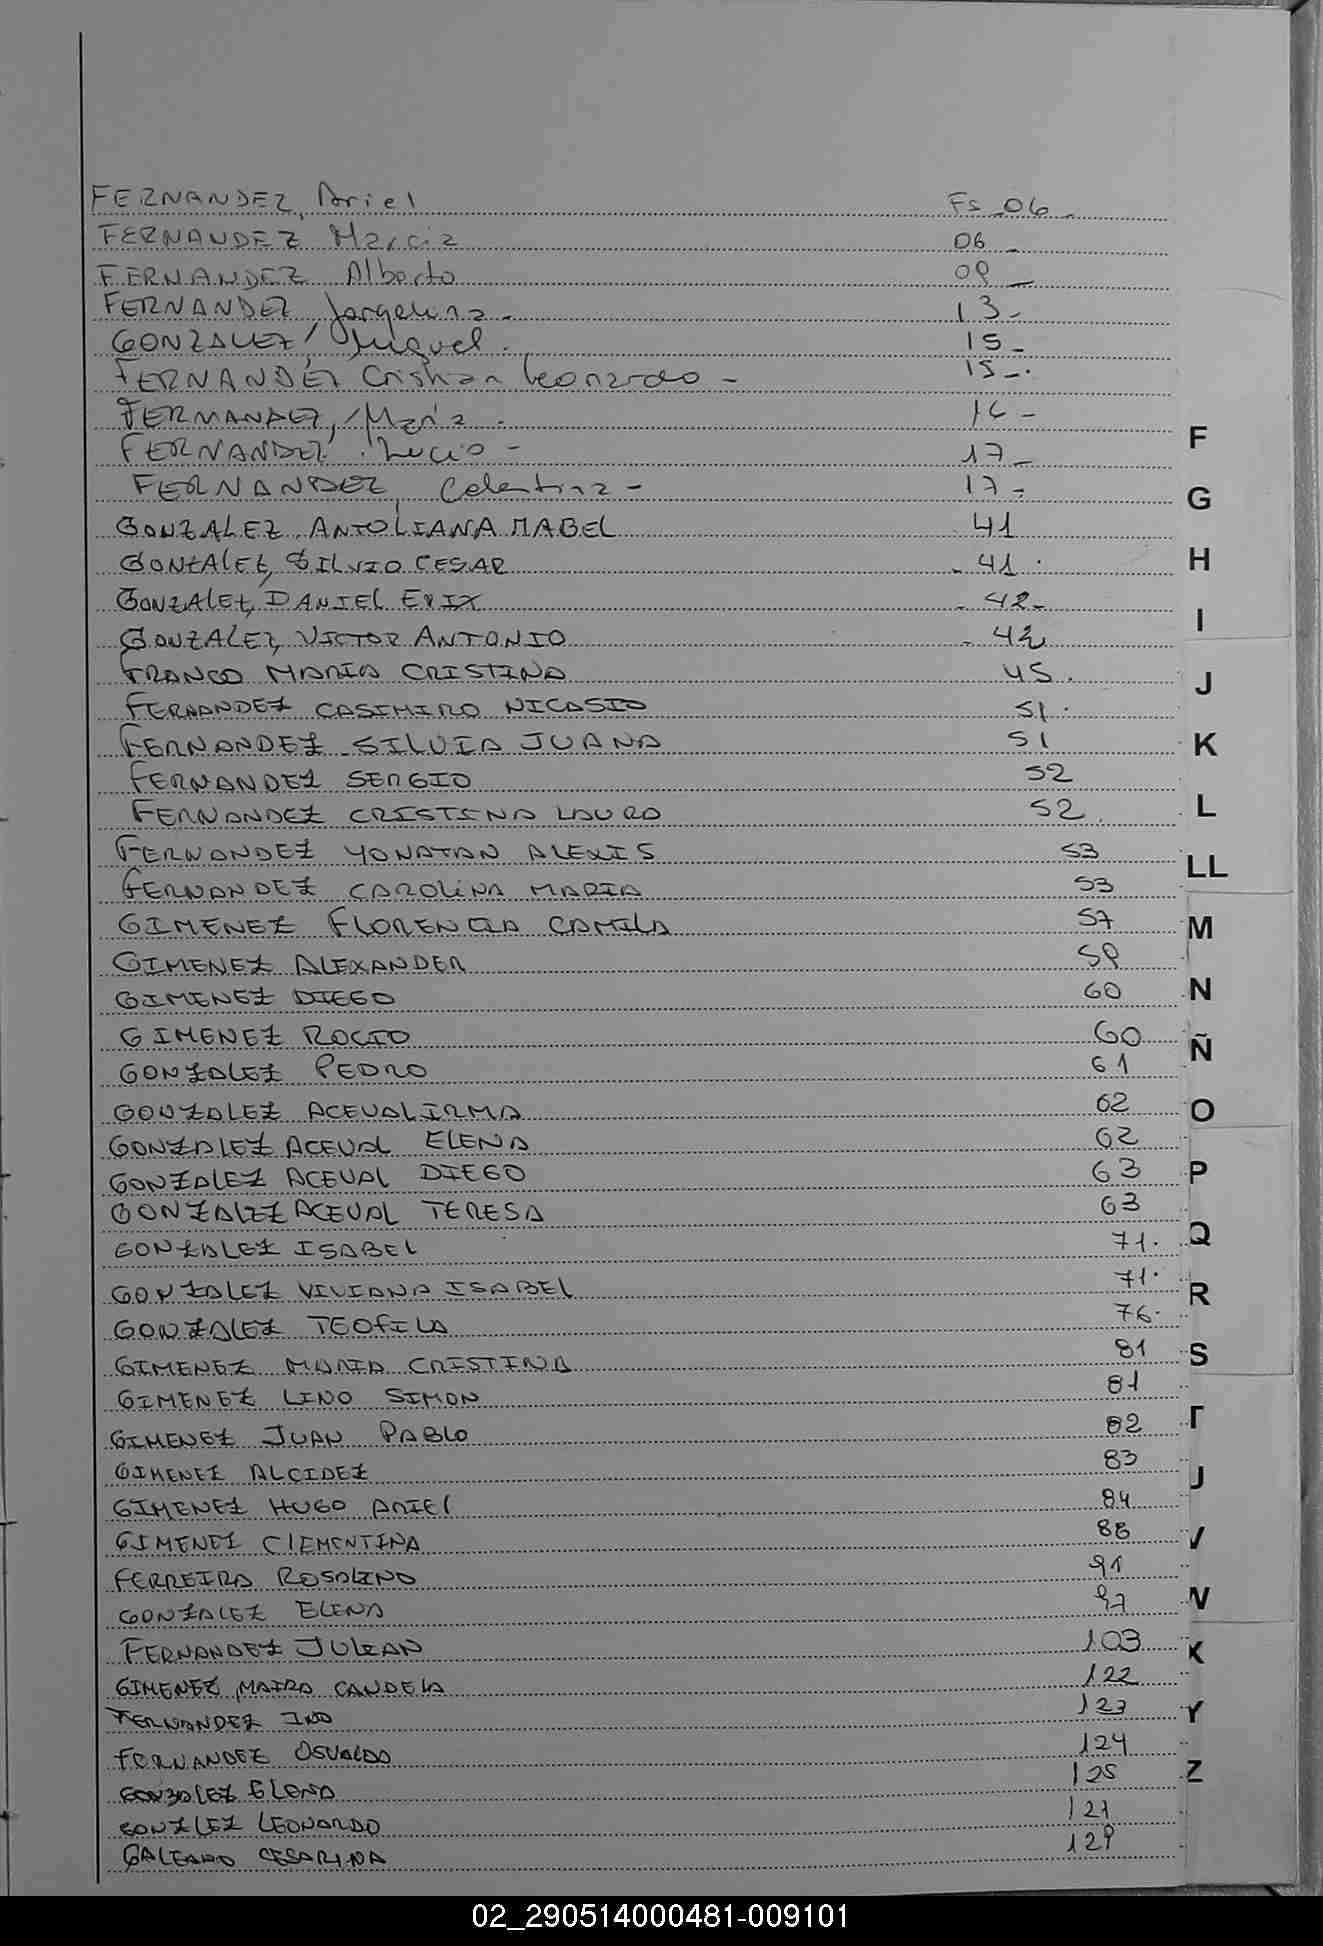 FERNANDEZ, Ariel Fs 06
FERNANDEZ Marcia 06
FERNANDEZ Alberto 09
FERNANDEZ Jorgelina 13
GONZALEZ, Miguel 15
FERNANDEZ Cristian Leonardo 15
FERNANDEZ, María 16
FERNANDEZ Lucio 17
FERNANDEZ, Celestina 17
GONZALEZ, ANTOLIANA MABEL 41
GONZALEZ, SILVIO CESAR 41
GONZALEZ, DANIEL ERIX 42
GONZALEZ, VICTOR ANTONIO 42
FRANCO MARIA CRISTINA 45
FERNANDEZ CASIMIRO NICASIO 51
FERNANDEZ SILVIA JUANA 51
FERNANDEZ SERGIO 52
FERNANDEZ CRISTINA LAURA 52
FERNANDEZ YONATAN ALEXIS 53
FERNANDEZ CAROLINA MARIA 53
GIMENEZ FLORENCIA CAMILA 57
GIMENEZ ALEXANDER 59
GIMENEZ DIEGO 60
GIMENEZ ROCIO 60
GONZALEZ PEDRO 61
GONZALEZ ACEVAL IRMA 62
GONZALEZ ACEVAL ELENA 62
GONZALEZ ACEVAL DIEGO 63
GONZALEZ ACEVAL TERESA 63
GONZALEZ ISABEL 71
GONZALEZ VIVIANA ISABEL 71
GONZALEZ TEOFILA 76
GIMENEZ MARIA CRISTINA 81
GIMENEZ LINO SIMON 81
GIMENEZ JUAN PABLO 82
GIMENEZ ALCIDEZ 83
GIMENEZ HUGO ARIEL 84
GIMENEZ CLEMENTINA 88
FERREIRA ROSALINO 91
GONZALEZ ELENA 97
FERNANDEZ JULIAN 103
GIMENEZ MAIRA CANDELA 122
FERNANDEZ INO 123
FERNANDEZ OSVALDO 124
GONZALEZ ELENA 125
GONZLEZ LEONARDO 121
GALEANO CESARINA 129
F
G
H
I
J
K
L
LL
M
N
Ñ
O
P
Q
R
S
T
V
Y
Z
02_290514000481-009101